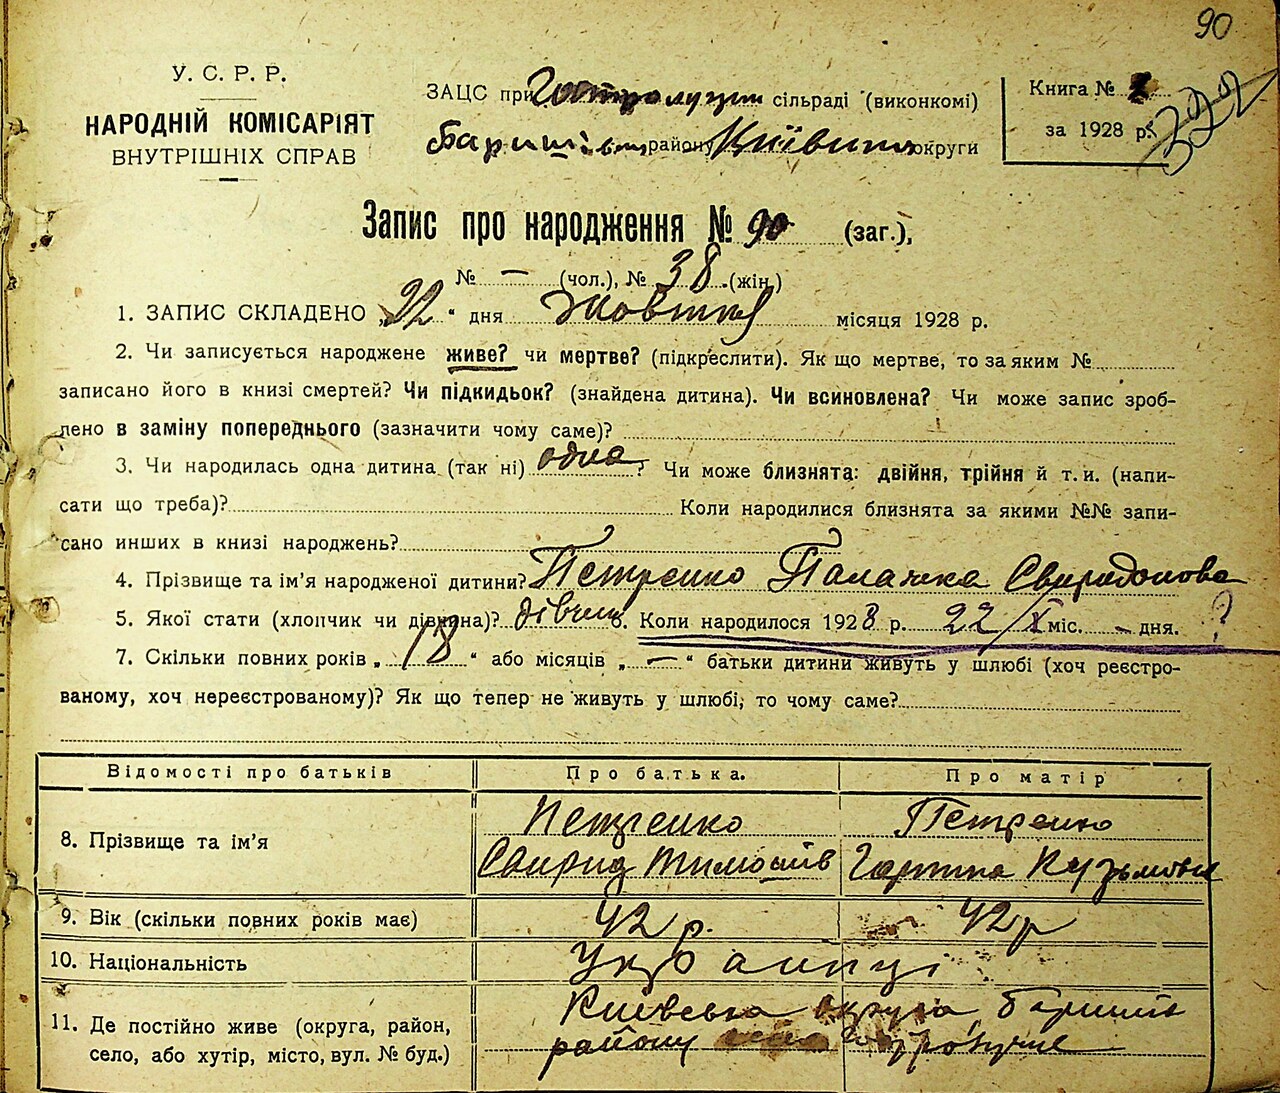 90
У. С. Р. Р.
НАРОДНІЙ КОМІСАРІЯТ
ВНУТРІШНІХ СПРАВ
ЗАЦС при Гостролуцьк сільраді (виконкомі)
Баришівськ району Київськ округи
Книга №
за 1928 р.
322
Запис про народження № 90 (заг.),
№ — (чол.), № 38 (жін.)
1. ЗАПИС СКЛАДЕНО „22“ дня Жовтня місяця 1928 р.
2. Чи записується народжене живе? чи мертве? (підкреслити). Як що мертве, то за яким №
записано його в книзі смертей? Чи підкидьок? (знайдена дитина). Чи всиновлена? Чи може запис зроб-
лено в заміну попереднього (зазначити чому саме)?
3. Чи народилась одна дитина (так ні) одна? Чи може близнята: двійня, трійня й т. и. (напи-
сати що треба)? Коли народилися близнята за якими №№ запи-
сано инших в книзі народжень?
4. Прізвище та ім’я народженої дитини? Петренко Палажка Свиридонова
5. Якої стати (хлопчик чи дівчина)? дівчин 6. Коли народилося 1928 р. 22/X міс. – дня. ?
7. Скільки повних років „18“ або місяців „—“ батьки дитини живуть у шлюбі (хоч реєстро-
ваному, хоч нереєстрованому)? Як що тепер не живуть у шлюбі, то чому саме?
Відомості про батьків Про батька. Про матір
8. Прізвище та ім’я Петренко Свирид Тимошів Петренко Горпина Кузьмовна
9. Вік (скільки повних років має) 42 р. 42 р
10. Національність Українці
11. Де постійно живе (округа, район, Київська округа, Баришів
село, або хутір, місто, вул. № буд.) району